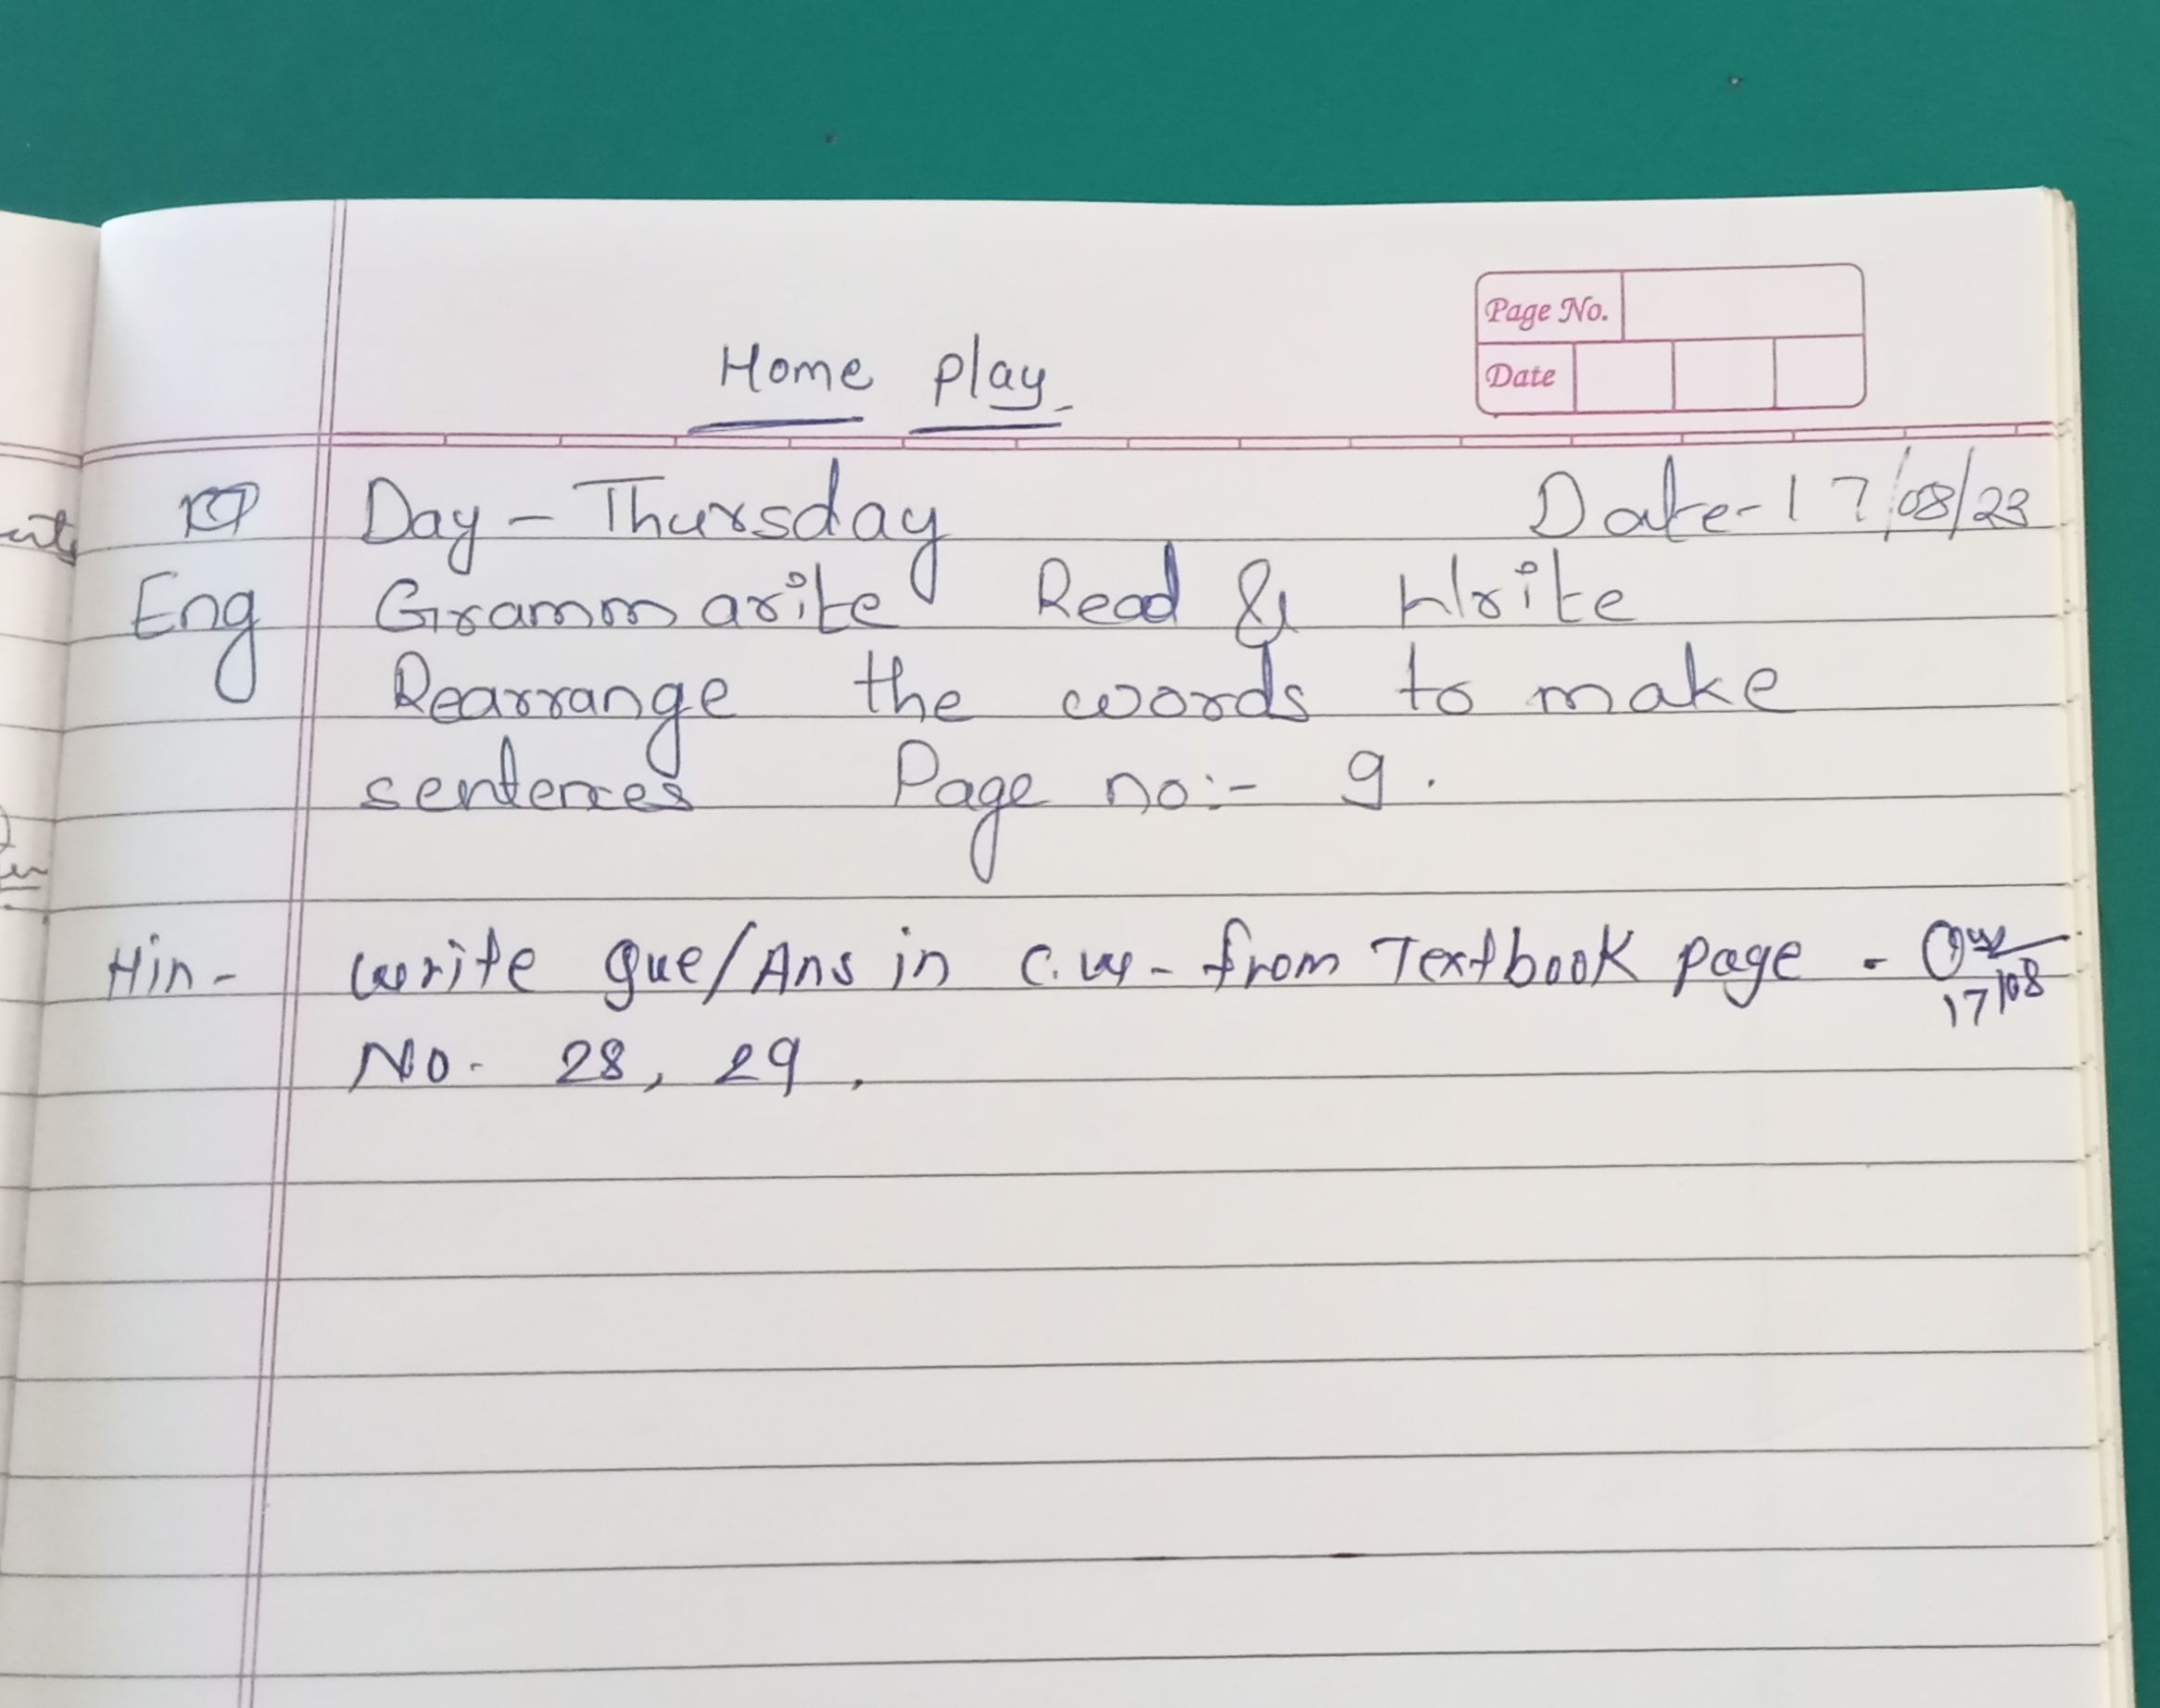 Page No.
Home play
Date
Day - Thursday Date - 17/08/23
Eng Grammarite Read & Write
Rearrange the words to make
sentences Page no:- 9.
Hin - write que/Ans in c.w - from Textbook page -
17/08
No. 28, 29,